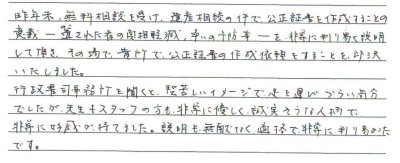 昨年末、無料相談を受け、遺産相続の件で、公正証書を作成することの
意義 ― 遺された者の負担軽減、争いの予防等 ― を、非常に判り易く説明
して頂き、その場で、貴所で、公正証書の作成依頼をすることを、即決
いたしました。
行政書士事務所と聞くと、堅苦しいイメージで、足を運びづらい気分
でしたが、先生もスタッフの方も、非常に優しく、誠実そうな人柄で、
非常に好感が持てました。説明も、無駄なく、適格で、非常に、判り易かった
です。